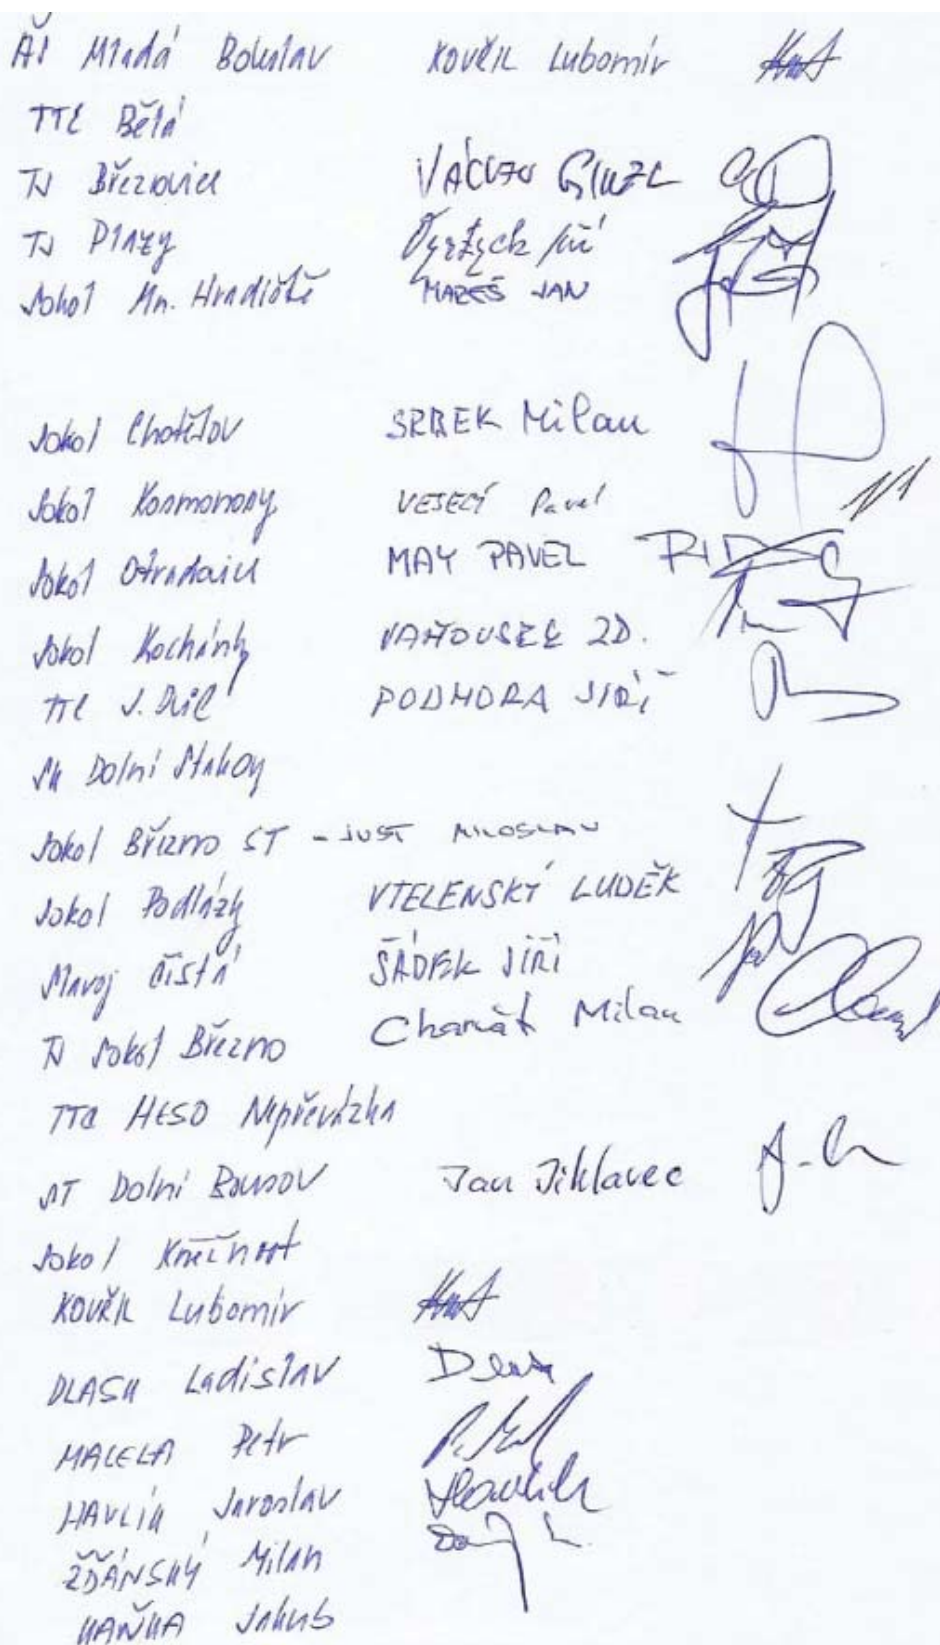 AŠ Mladá Boleslav KOVŘIL Lubomír
TTC Bělá
TJ Březovice VÁCLAV GINZL
TJ Plazy
Sokol Mn. Hradiště MAREŠ JAN
Sokol Chotětov SRBEK Milan
Sokol Kosmonosy VESELÝ Pavel
Sokol Otradovice MAY PAVEL
Sokol Kochánky VAŇOUSEK ZD.
TTC J. Důl PODHORA JIŘÍ
SK Dolní Stakory
Sokol Březno ST - JUST MILOSLAV
Sokol Podlázky VTELENSKÝ LUDĚK
Slavoj Čistá ŠÁDEK JIŘÍ
TJ Sokol Březno Charvát Milan
TTC HESO Nepřevázka
ST Dolní Bousov Jan Jihlavec
Sokol Kněžmost
KOVŘIL Lubomír
DLASK Ladislav
MACELA Petr
HAVLÍK Jaroslav
ŽĎÁNSKÝ Milan
KAŇKA Jakub